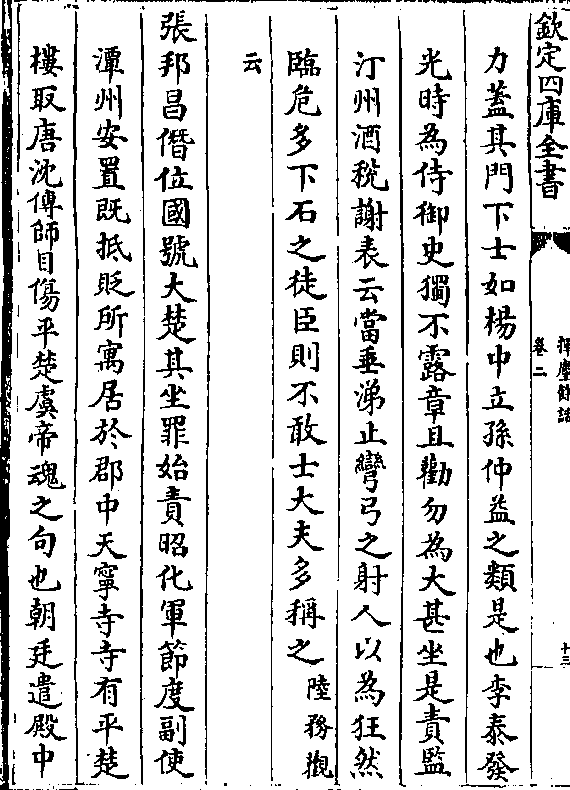 欽定四庫全書
揮麈餘話
卷二
十三
力蓋其門下士如楊中立孫仲益之類是也李泰發
光時為侍御史獨不露章且勸勿為大甚坐是責監
汀州酒稅謝表云當垂涕止彎弓之射人以為狂然
臨危多下石之徒臣則不敢士大夫多稱之陸務觀
云
張邦昌僭位國號大楚其坐罪始責昭化軍節度副使
潭州安置既抵貶所寓居於郡中天寧寺寺有平楚
樓取唐沈傳師目傷平楚虞帝魂之句也朝廷遣殿中